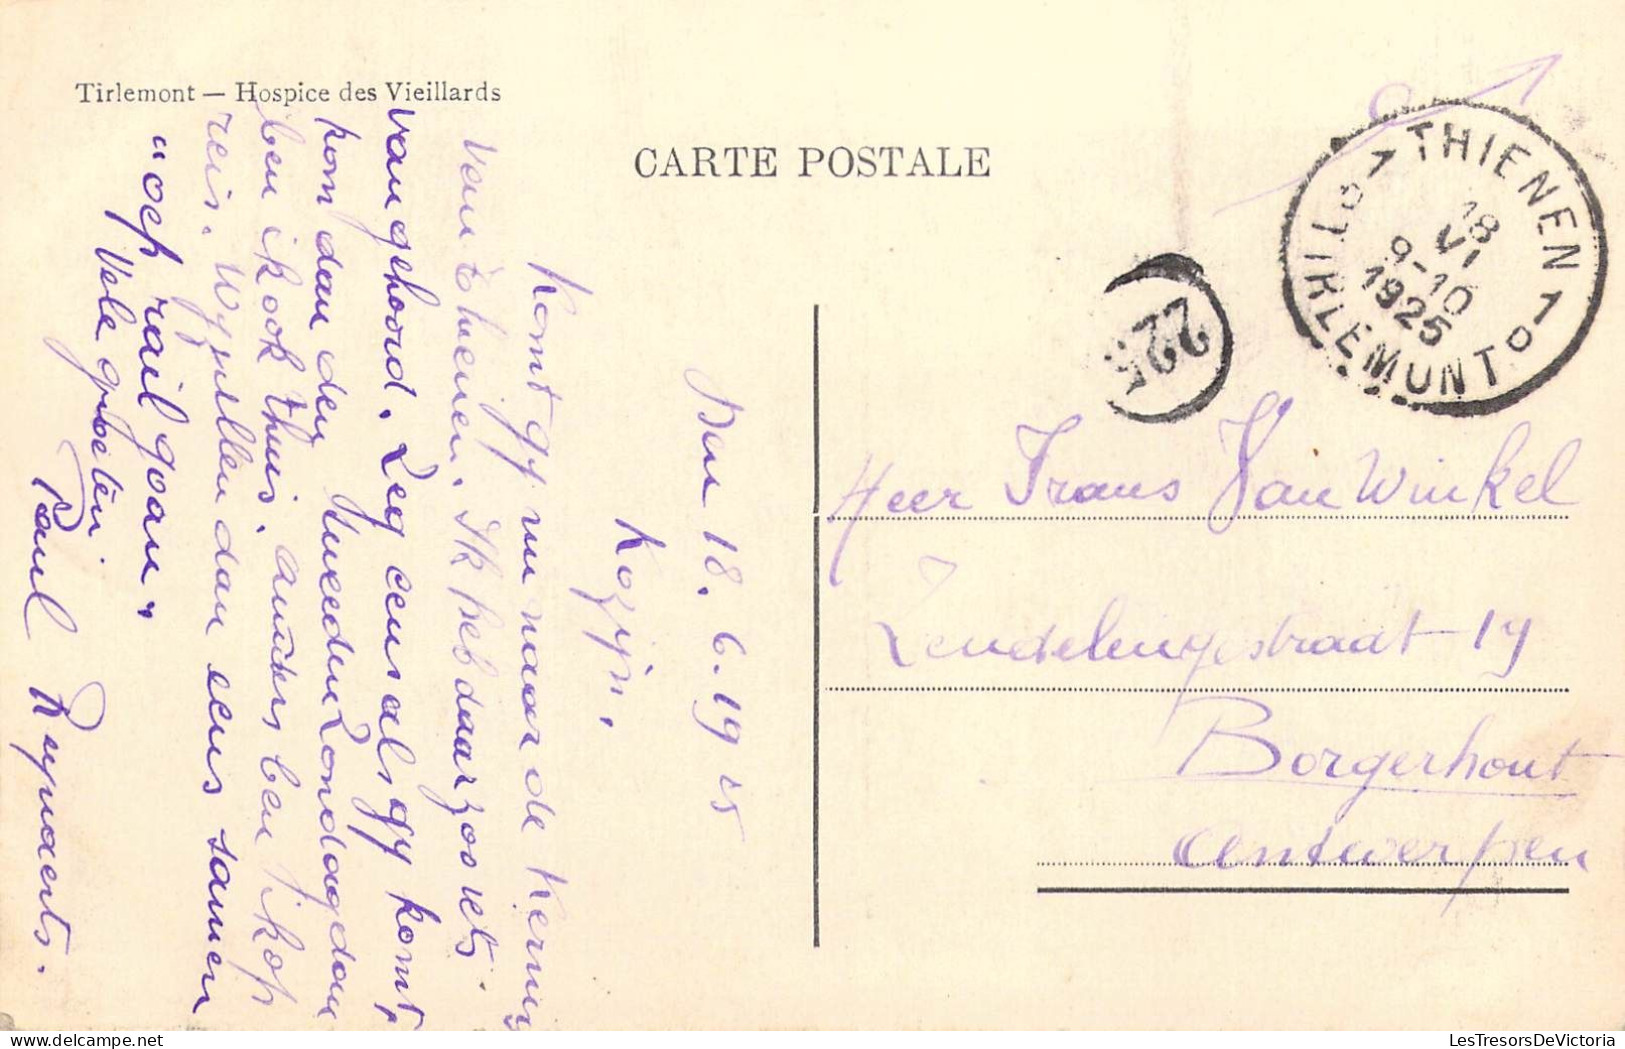 Tirlemont — Hospice des Vieillards
CARTE POSTALE
THIENEN
1 1
18
VI
9-10
1925
TIRLEMONT
225
Den 18.6.1925
Kozijn.
Komt gy nu naar de Kermis
van Thienen. Ik heb daar zoo iets
van gehoord. Zeg eens als gy komt,
kom dan den tweeden Zondag dan
ben ik ook thuis, anders ben ik op
reis. Wy zullen dan eens samen
"oep rail goan"
Vele groeten
Paul Reynaerts.
Heer Frans Van Winkel
Zendelingestraat 19
Borgerhout
Antwerpen
LesTresorsDeVictoria.com